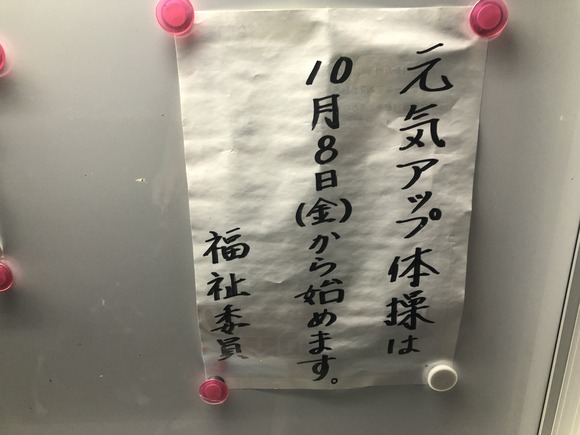 元気アップ体操は
10月8日(金)から始めます。
福祉委員